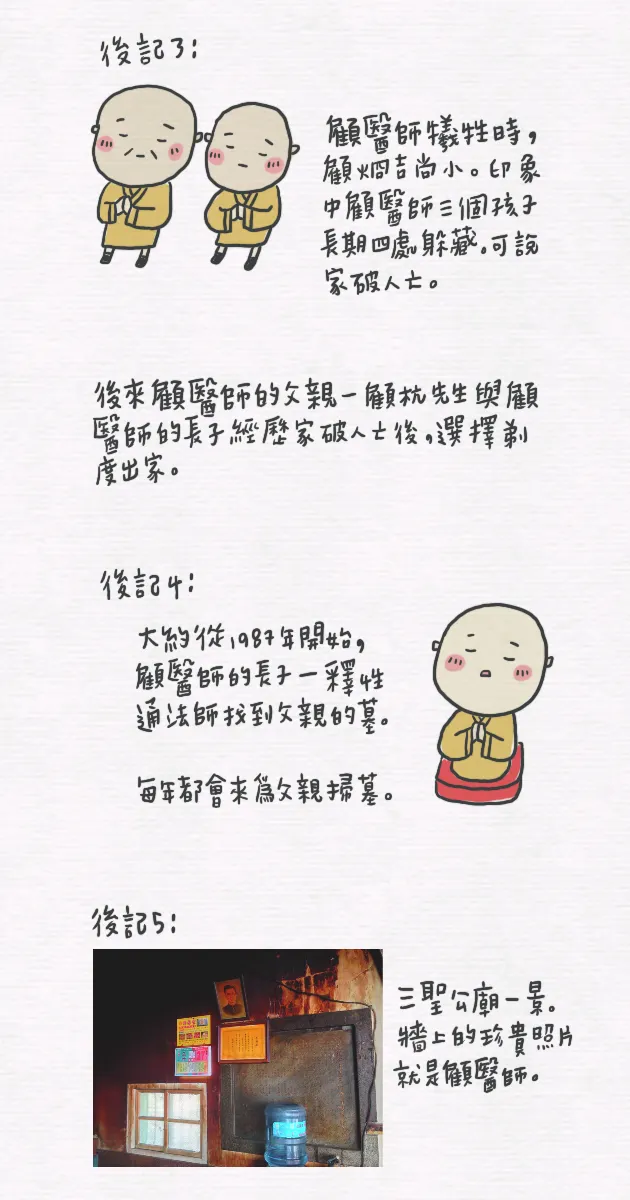 後記3:
顧醫師犧牲時，
顧炯吉尚小。印象
中顧醫師三個孩子
長期四處躲藏。可說
家破人亡。
後來顧醫師的父親－顧杭先生與顧
醫師的長子經歷家破人亡後，選擇剃
度出家。
後記4:
大約從1987年開始，
顧醫師的長子－釋性
通法師找到父親的墓。
每年都會來為父親掃墓。
後記5:
三聖公廟一景。
牆上的珍貴照片
就是顧醫師。